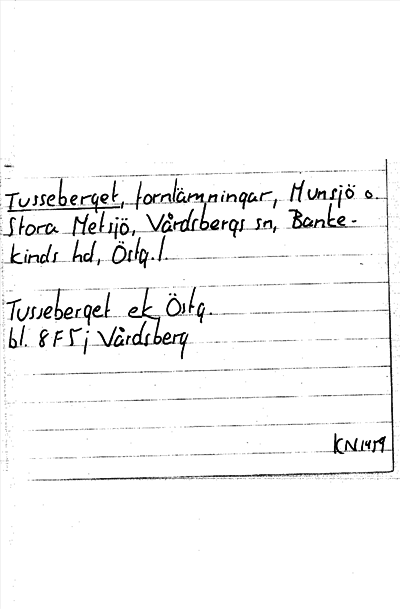 Tusseberget, fornlämningar, Munsjö o.
Stora Metsjö, Vårdsbergs sn, Banke-
kinds hd, Östg. l.
Tusseberget ek, Östg.
bl. 8F5j Vårdsberg